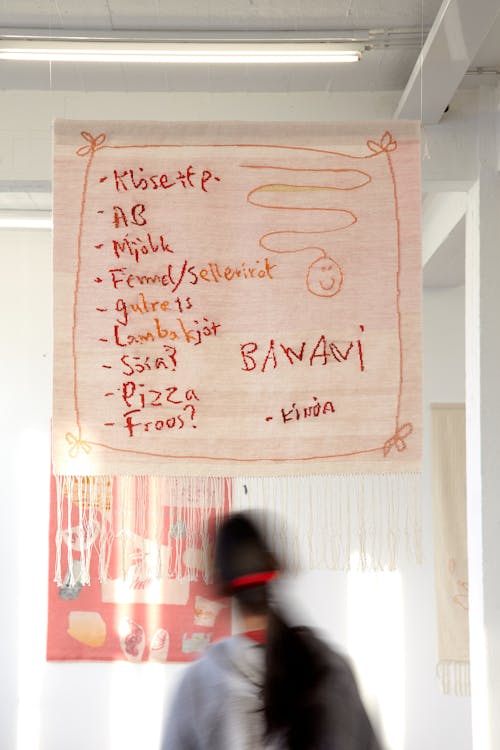 - Klósetþp.
- AB
- Mjólk
- Fennel/Sellerírót
- gulræts
- Lambakjöt
- Sósa?
- Pizza
- Froos?
BANANI
- KINOA